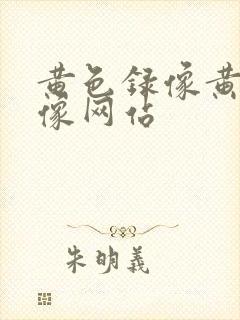 黄色録像黄
像网佔
朱明義